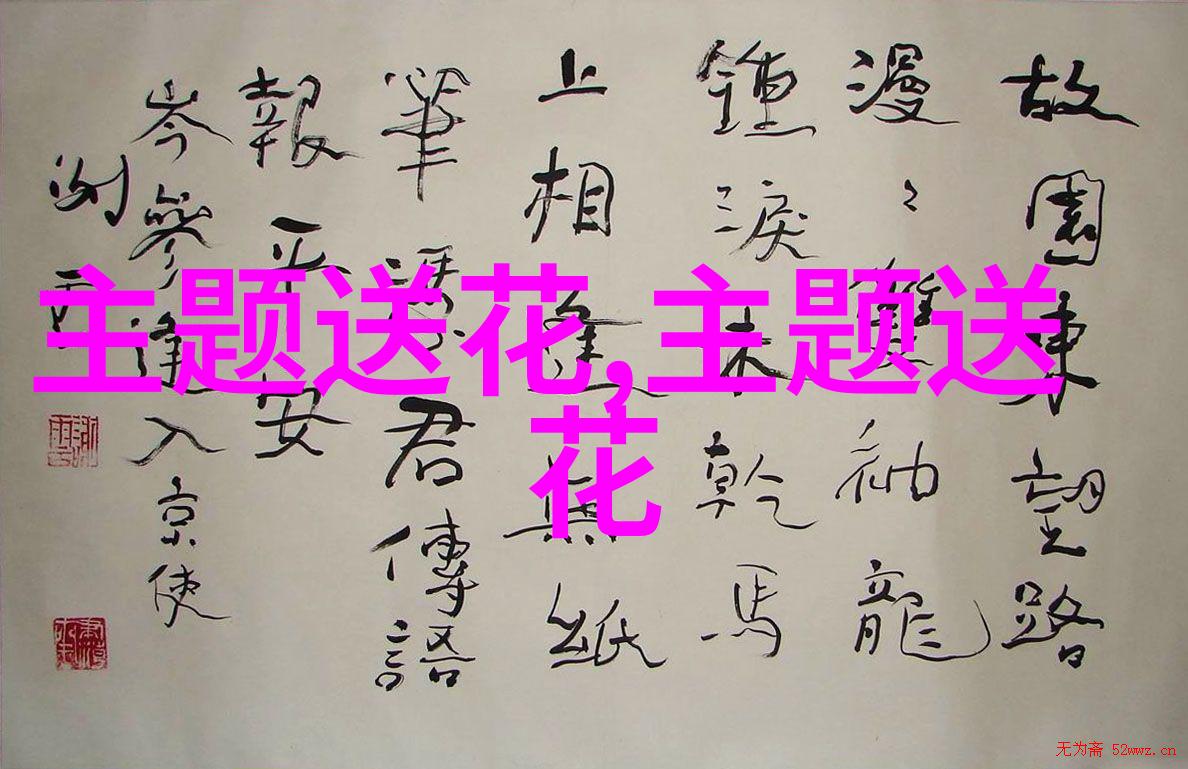 故園東望路
漫〻雙袖龍
鍾淚未乾馬
上相逢無紙
筆憑君傳語
報平安
岑參逢入京使
主题送花,主题送
花
无为斋 52wwz.cn